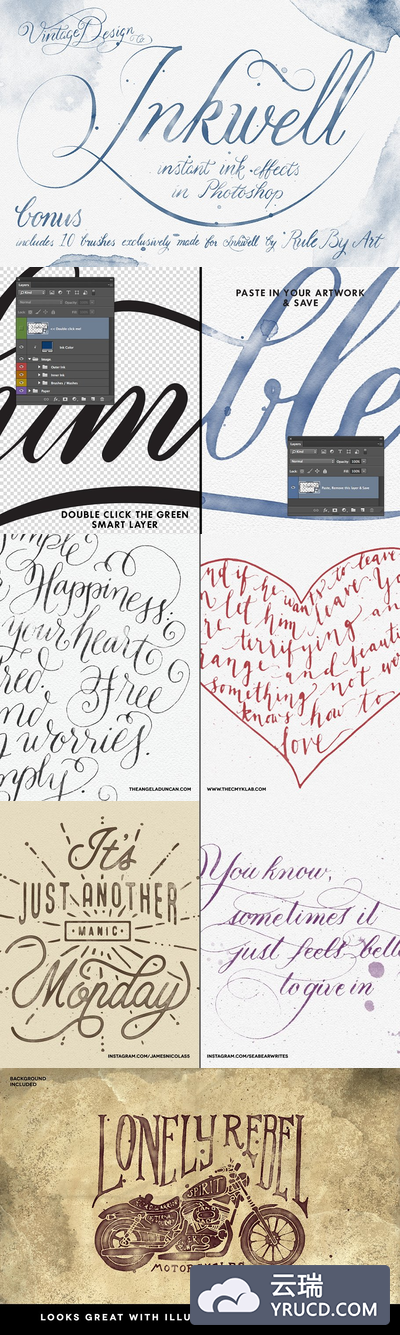 VintageDesign Co
Inkwell
instant ink effects
in Photoshop
bonus
includes 10 brushes exclusively made for Inkwell by Rule By Art
PASTE IN YOUR ARTWORK
& SAVE
DOUBLE CLICK THE GREEN
SMART LAYER
Happiness:
your heart
Free
worries.
THEANGELADUNCAN.COM
nd if he wants to leave
let him leave Yo
terrifying an
range and beauti
something not
knows how to
love
WWW.THECMYKLAB.COM
It's
JUST ANOTHER
·MANIC·
Monday
INSTAGRAM.COM/JAMESNICOLASS
You know,
sometimes it
just feels bette
to give in
INSTAGRAM.COM/SEABEARWRITES
BACKGROUND
INCLUDED
LONELY REBEL
SPIRIT
MOTORCYCLES
LOOKS GREAT WITH ILLU
云瑞
YRUCD.COM